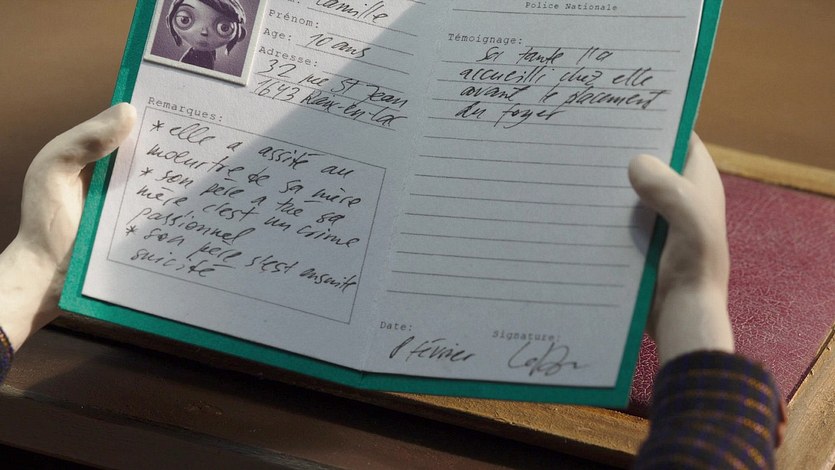 Camille
Prénom:
Age: 10 ans
Adresse:
32 rue St Jean
1643 Reux-en-Lac
Remarques:
* elle a assité au
meurtre de sa mère
* son père a tué sa
mère c'est un crime
passionnel
* son père s'est ensuite
suicidé
Police Nationale
Témoignage:
Sa tante l'a
accueilli chez elle
avant le placement
du foyer
Date:
8 février
Signature: